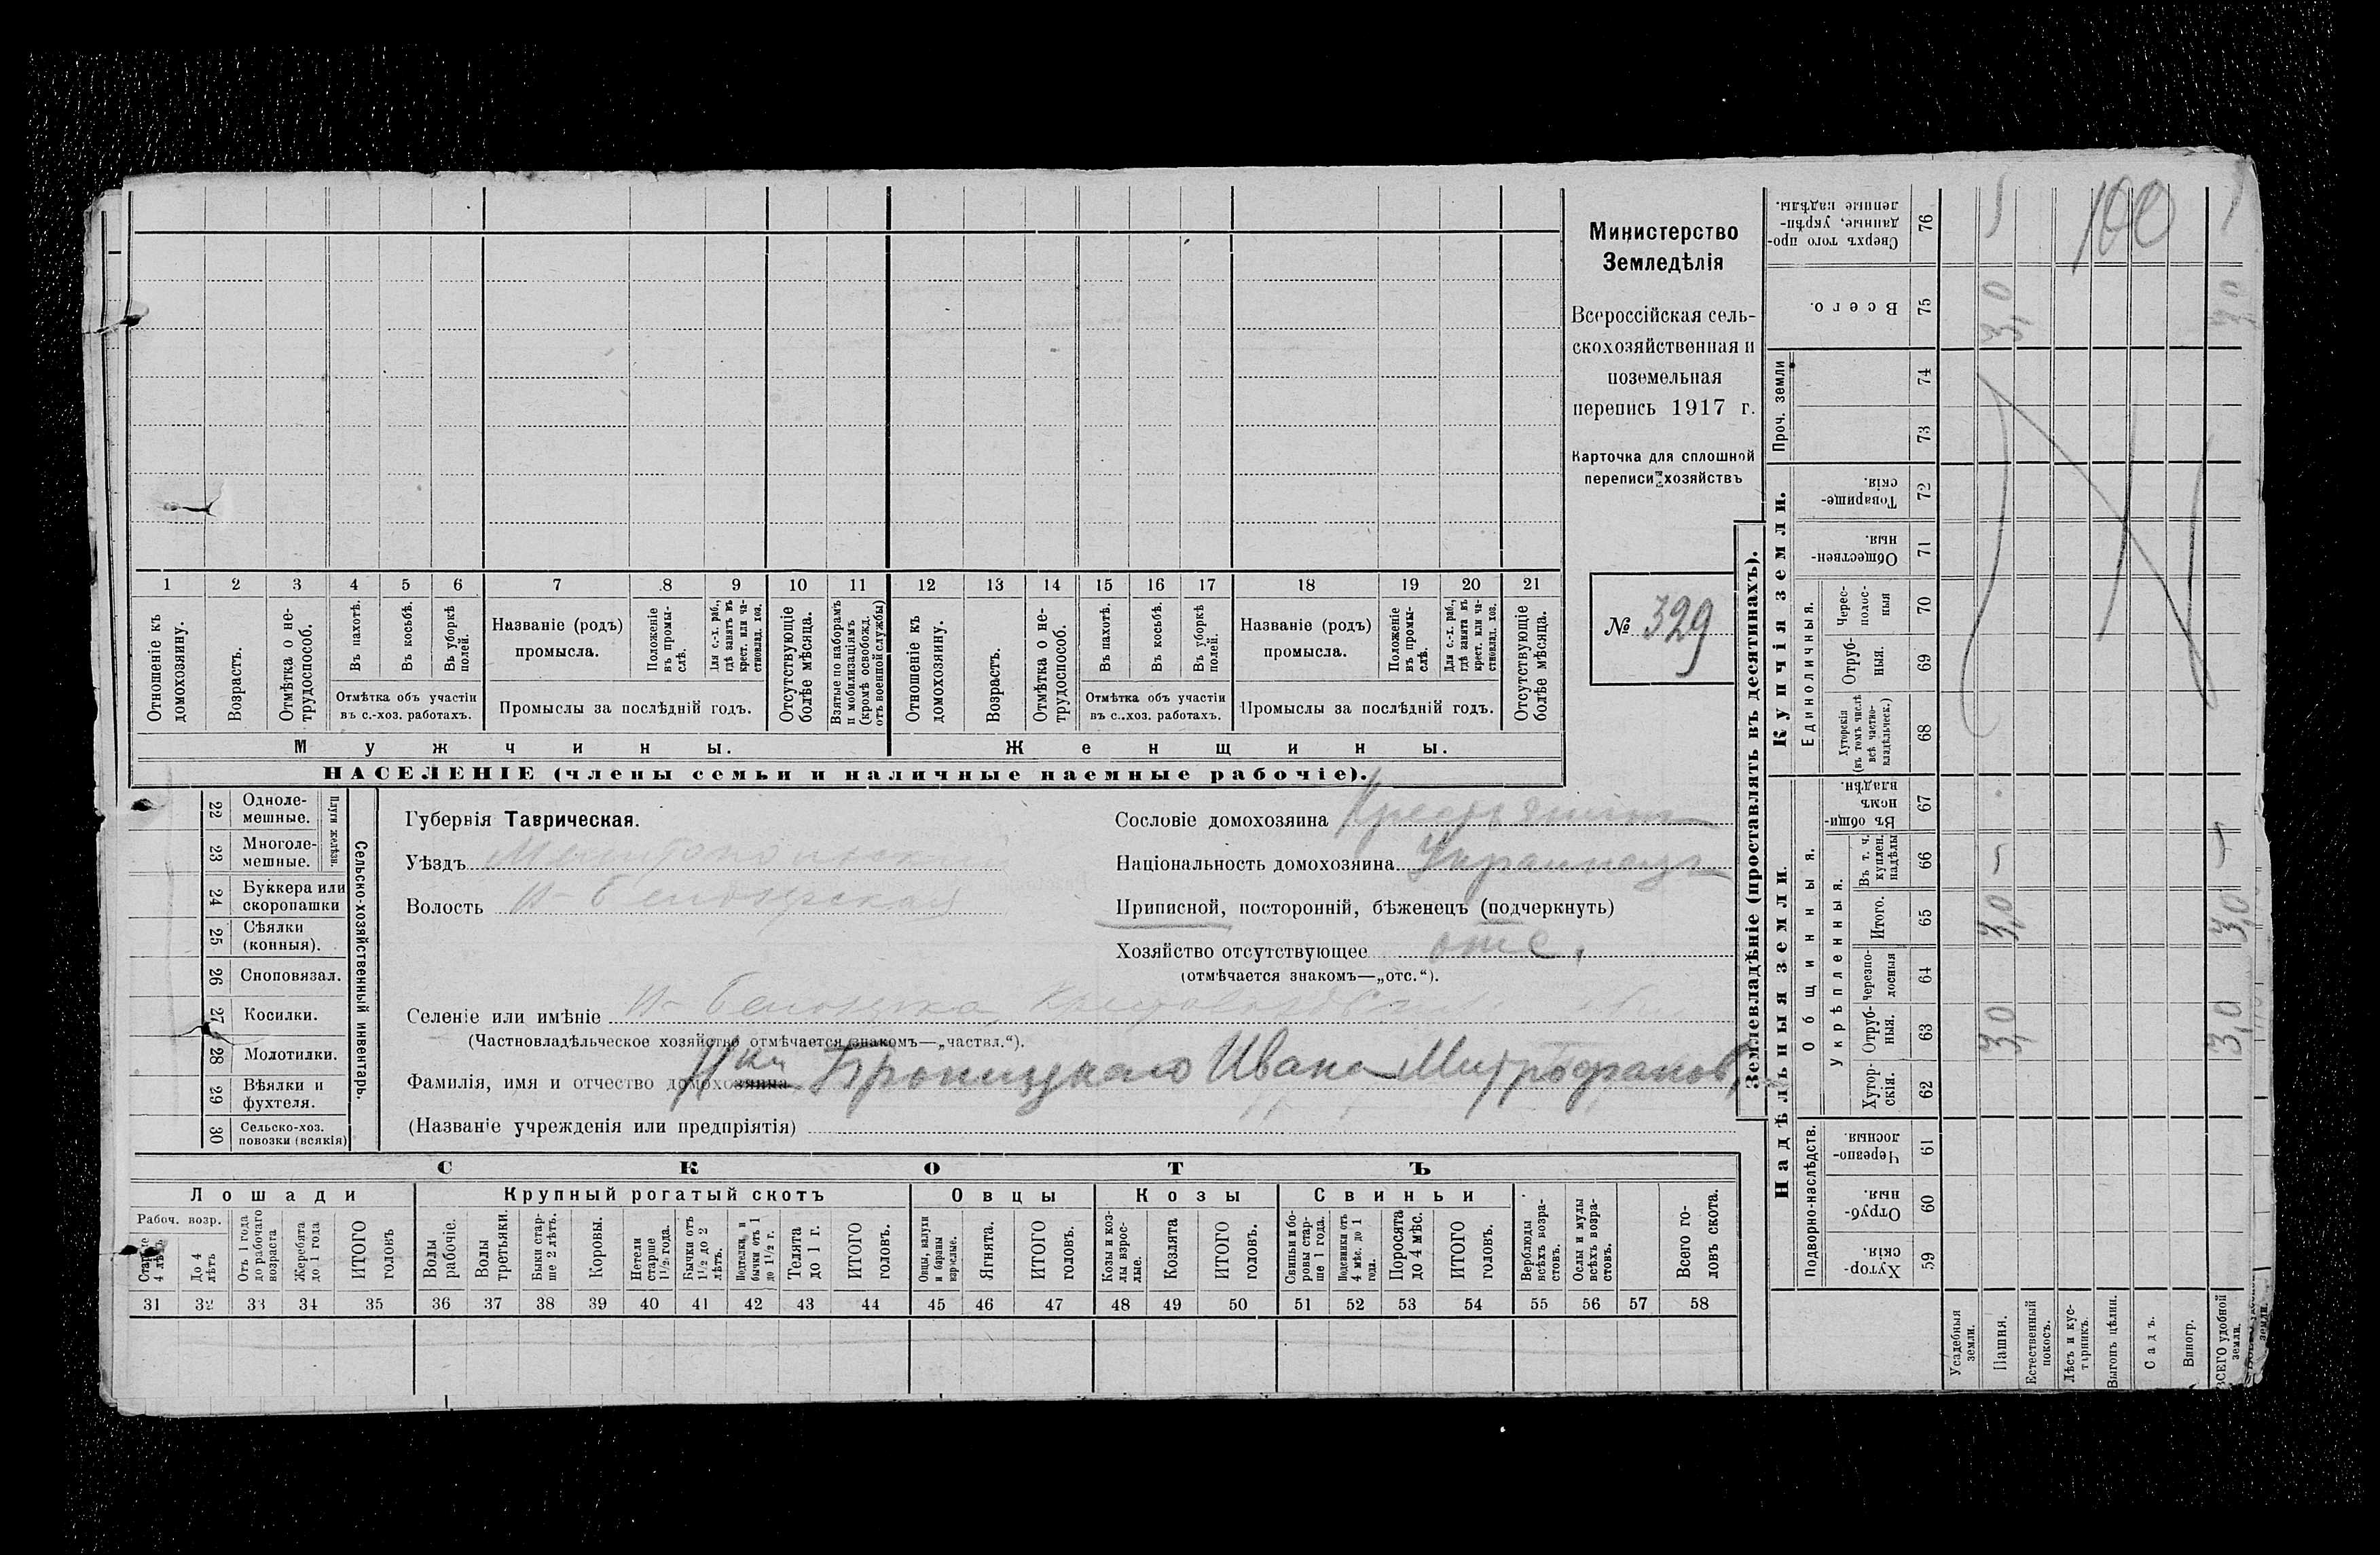 Министерство
Земледѣлія
Всероссійская сель-
скохозяйственная и
поземельная
перепись 1917 г.
Карточка для сплошной
переписи хозяйствъ
№ 329
1 2 3 4 5 6 7 8 9 10 11 12 13 14 15 16 17 18 19 20 21
Отношеніе къ домохозяину.
Возрастъ.
Отмѣтка о не-трудоспособ.
Въ пахотѣ.
Въ косьбѣ.
Въ уборкѣ полей.
Отмѣтка объ участіи
въ с.-хоз. работахъ.
Названіе (родъ)
промысла.
Положеніе въ промы-слѣ.
Для с.-х. раб., гдѣ занятъ въ крест. или ча-стновлад. хоз.
Промыслы за послѣдній годъ.
Отсутствующіе болѣе мѣсяца.
Взятые по наборамъ и мобилизаціямъ (кромѣ освобожд. отъ военной службы)
Отношеніе къ домохозяину.
Возрастъ.
Отмѣтка о не-трудоспособ.
Въ пахотѣ.
Въ косьбѣ.
Въ уборкѣ полей.
Отмѣтка объ участіи
въ с.-хоз. работахъ.
Названіе (родъ)
промысла.
Положеніе въ промы-слѣ.
Для с.-х. раб., гдѣ занята въ крест. или ча-стновлад. хоз.
Промыслы за послѣдній годъ.
Отсутствующіе болѣе мѣсяца.
Мужчины.
Женщины.
НАСЕЛЕНІЕ (члены семьи и наличные наемные рабочіе).
22 Одноле-мешные.
23 Многоле-мешные.
Плуги желѣзн.
24 Буккера или скоропашки
25 Сѣялки (конныя).
26 Сноповязал.
27 Косилки.
28 Молотилки.
29 Вѣялки и фухтеля.
30 Сельско-хоз. повозки (всякія)
Сельско-хозяйственный инвентарь.
Губернія Таврическая.
Уѣздъ Мелитопольский
Волость Н-Белозерская
Сословіе домохозяина Крестьянинъ
Національность домохозяина Украинецъ
Приписной, посторонній, бѣженецъ (подчеркнуть)
Хозяйство отсутствующее отс.
(отмѣчается знакомъ—„отс.“).
Селеніе или имѣніе Н-Белозерка
(Частновладѣльческое хозяйство отмѣчается знакомъ—„частвл.“).
Фамилія, имя и отчество домохозяина Н-ки Броницкаго Ивана Митрофанов.
(Названіе учрежденія или предпріятія)
СКОТЪ
Лошади
Крупный рогатый скотъ
Овцы
Козы
Свиньи
Рабоч. возр.
Старше 4 лѣтъ
До 4 лѣтъ
Отъ 1 года до рабочаго возраста
Жеребята до 1 года
ИТОГО головъ
Волы рабочіе.
Волы третьяки.
Быки стар-ше 2 лѣтъ.
Коровы.
Нетели старше 1½ года.
Бычки отъ 1½ до 2 лѣтъ.
Подтелки и бычки отъ 1 до 1½ г.
Телята до 1 г.
ИТОГО головъ.
Овцы, валухи и бараны взрослые.
Ягнята.
ИТОГО головъ.
Козы и коз-лы взрос-лые.
Козлята
ИТОГО головъ.
Свиньи и бо-ровы стар-ше 1 года.
Подсвинки отъ 4 мѣс. до 1 года.
Поросята до 4 мѣс.
ИТОГО головъ.
Верблюды всѣхъ возра-стовъ.
Ослы и мулы всѣхъ возра-стовъ.
Всего го-ловъ скота.
31 32 33 34 35 36 37 38 39 40 41 42 43 44 45 46 47 48 49 50 51 52 53 54 55 56 57 58
Землевладѣніе (проставлять въ десятинахъ).
Надѣльныя земли.
Купчія земли.
Проч. земли
Подворно-наслѣдств.
Общинныя.
Укрѣпленныя.
Единоличныя.
Хутор-скія. 59
Отруб-ныя. 60
Черезпо-лосныя. 61
Хутор-скія. 62
Отруб-ныя. 63
Черезпо-лосныя 64
Итого. 65
Въ т. ч. куплен. надѣлы 66
Въ общи-номъ владѣн. 67
Хуторскія (въ томъ числѣ всѣ частно-владѣльческ.) 68
Отруб-ныя. 69
Черес-полос-ныя 70
Обществен-ныя. 71
Товарище-скія. 72
73
74
Всего. 75
Сверхъ того про-данные, укрѣп-ленные надѣлы. 76
Усадебныя земли.
Пашня. 3,0 3,0 — 3,0
Естественный покосъ.
Лѣсъ и кус-тарникъ.
Выгонъ цѣлин.
Садъ.
Виногр.
ВСЕГО удобной земли. 3,0 3,0 — 3,0
100